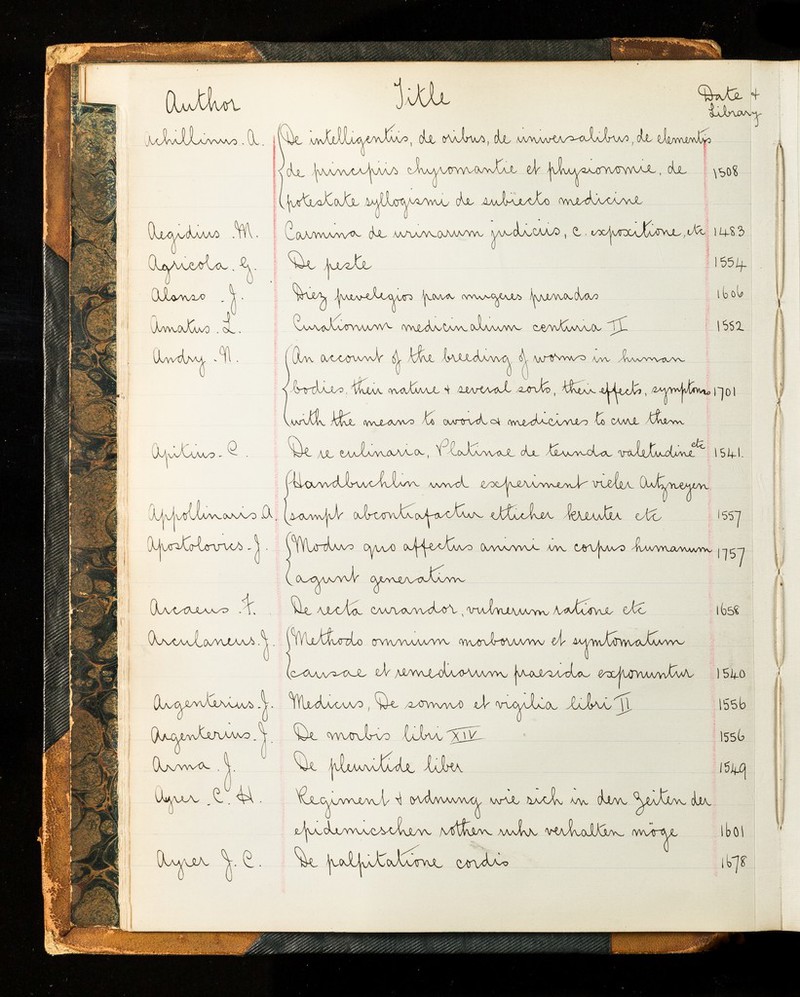 Author Title Date &
Library
Achillinus. A. De intelligentiis, de oribus, de universalibus, de elementis
de principiis chyromantie et physionomie, de 1508
potestate syllogismi de subiecto medicine
Aegidius. M. Carmina de urinarum judiciis, c. expozitione, etc 1483
Agricola. G. De peste 1554
Alonso. J. Diez prevelegios para mugeres prenadas 1606
Amatus. L. Curationum medicinalium centuria II 1552
Andry. N. An account of the breeding of worms in human
bodies, their nature & several sorts, their effects, symptoms 1701
with the means to avoid & medicines to cure them
Apitius. C. De re culinaria, Platinae de tuenda valetudine etc 1541.
Handbuchlin und experiment vieler Artzneyen
Appollinaris A. sampt abcontrafactur etlicher kreuter etc 1557
Apostolovics. J. Modus quo affectus animi in corpus humanum 1757
agunt generatim
Arcaeus. F. De recta curandor, vulnerum ratione etc 1658
Arculaneus. J. Methodo omnium morborum et symtomatum
causae et remediorum praesida exponuntur 1540
Argenterius. J. Medicus, De somno et vigilia libri II 1556
Argenterius. J. De morbis libri XIV 1556
Arma. J. De pleuritide liber 1549
Ayrer. C. H. Regiment & ordnung wie sich in den Zeiten der
epidemicschen rothen ruhr verhalten möge 1601
Ayrer J. C. De palpitatione cordis 1678